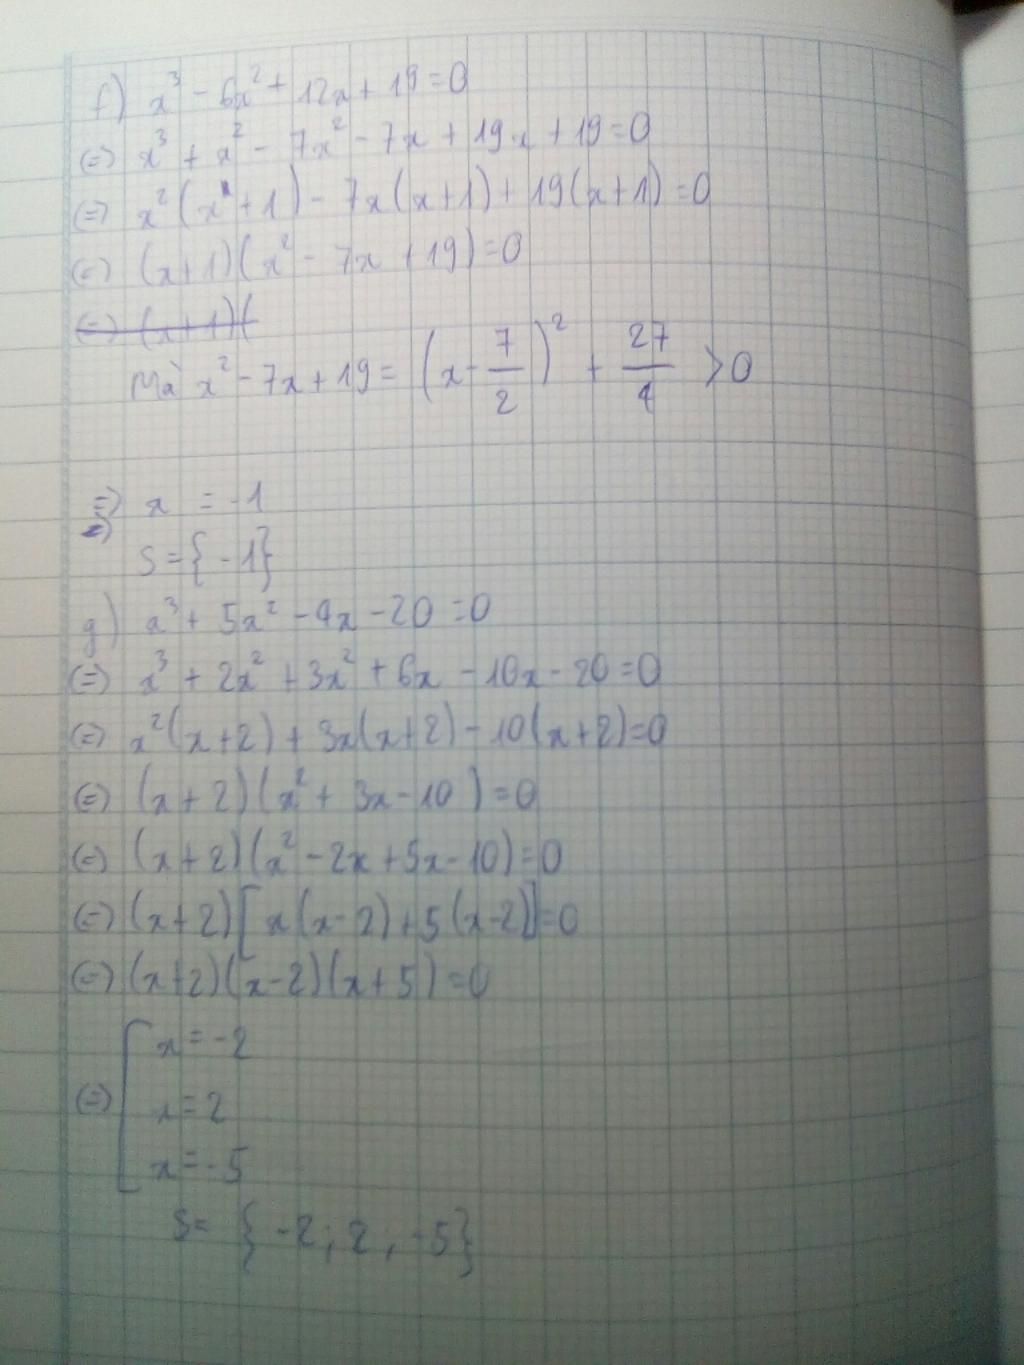 f) x³ - 6x² + 12x + 19 = 0
(=) x³ + x² - 7x² - 7x + 19x + 19 = 0
(=) x²(x + 1) - 7x(x+1) + 19(x+1) = 0
(=) (x+1)(x² - 7x + 19) = 0
(=) (x+1)(
Mà x² - 7x + 19 = (x - 7/2)² + 27/4 > 0
=) x = -1
S = {-1}
g) x³ + 5x² - 4x - 20 = 0
(=) x³ + 2x² + 3x² + 6x - 10x - 20 = 0
(=) x²(x+2) + 3x(x+2) - 10(x+2) = 0
(=) (x+2)(x² + 3x - 10) = 0
(=) (x+2)(x² - 2x + 5x - 10) = 0
(=) (x+2)[x(x-2) + 5(x-2)] = 0
(=) (x+2)(x-2)(x+5) = 0
x = -2
(=) x = 2
x = -5
S = {-2; 2; -5}